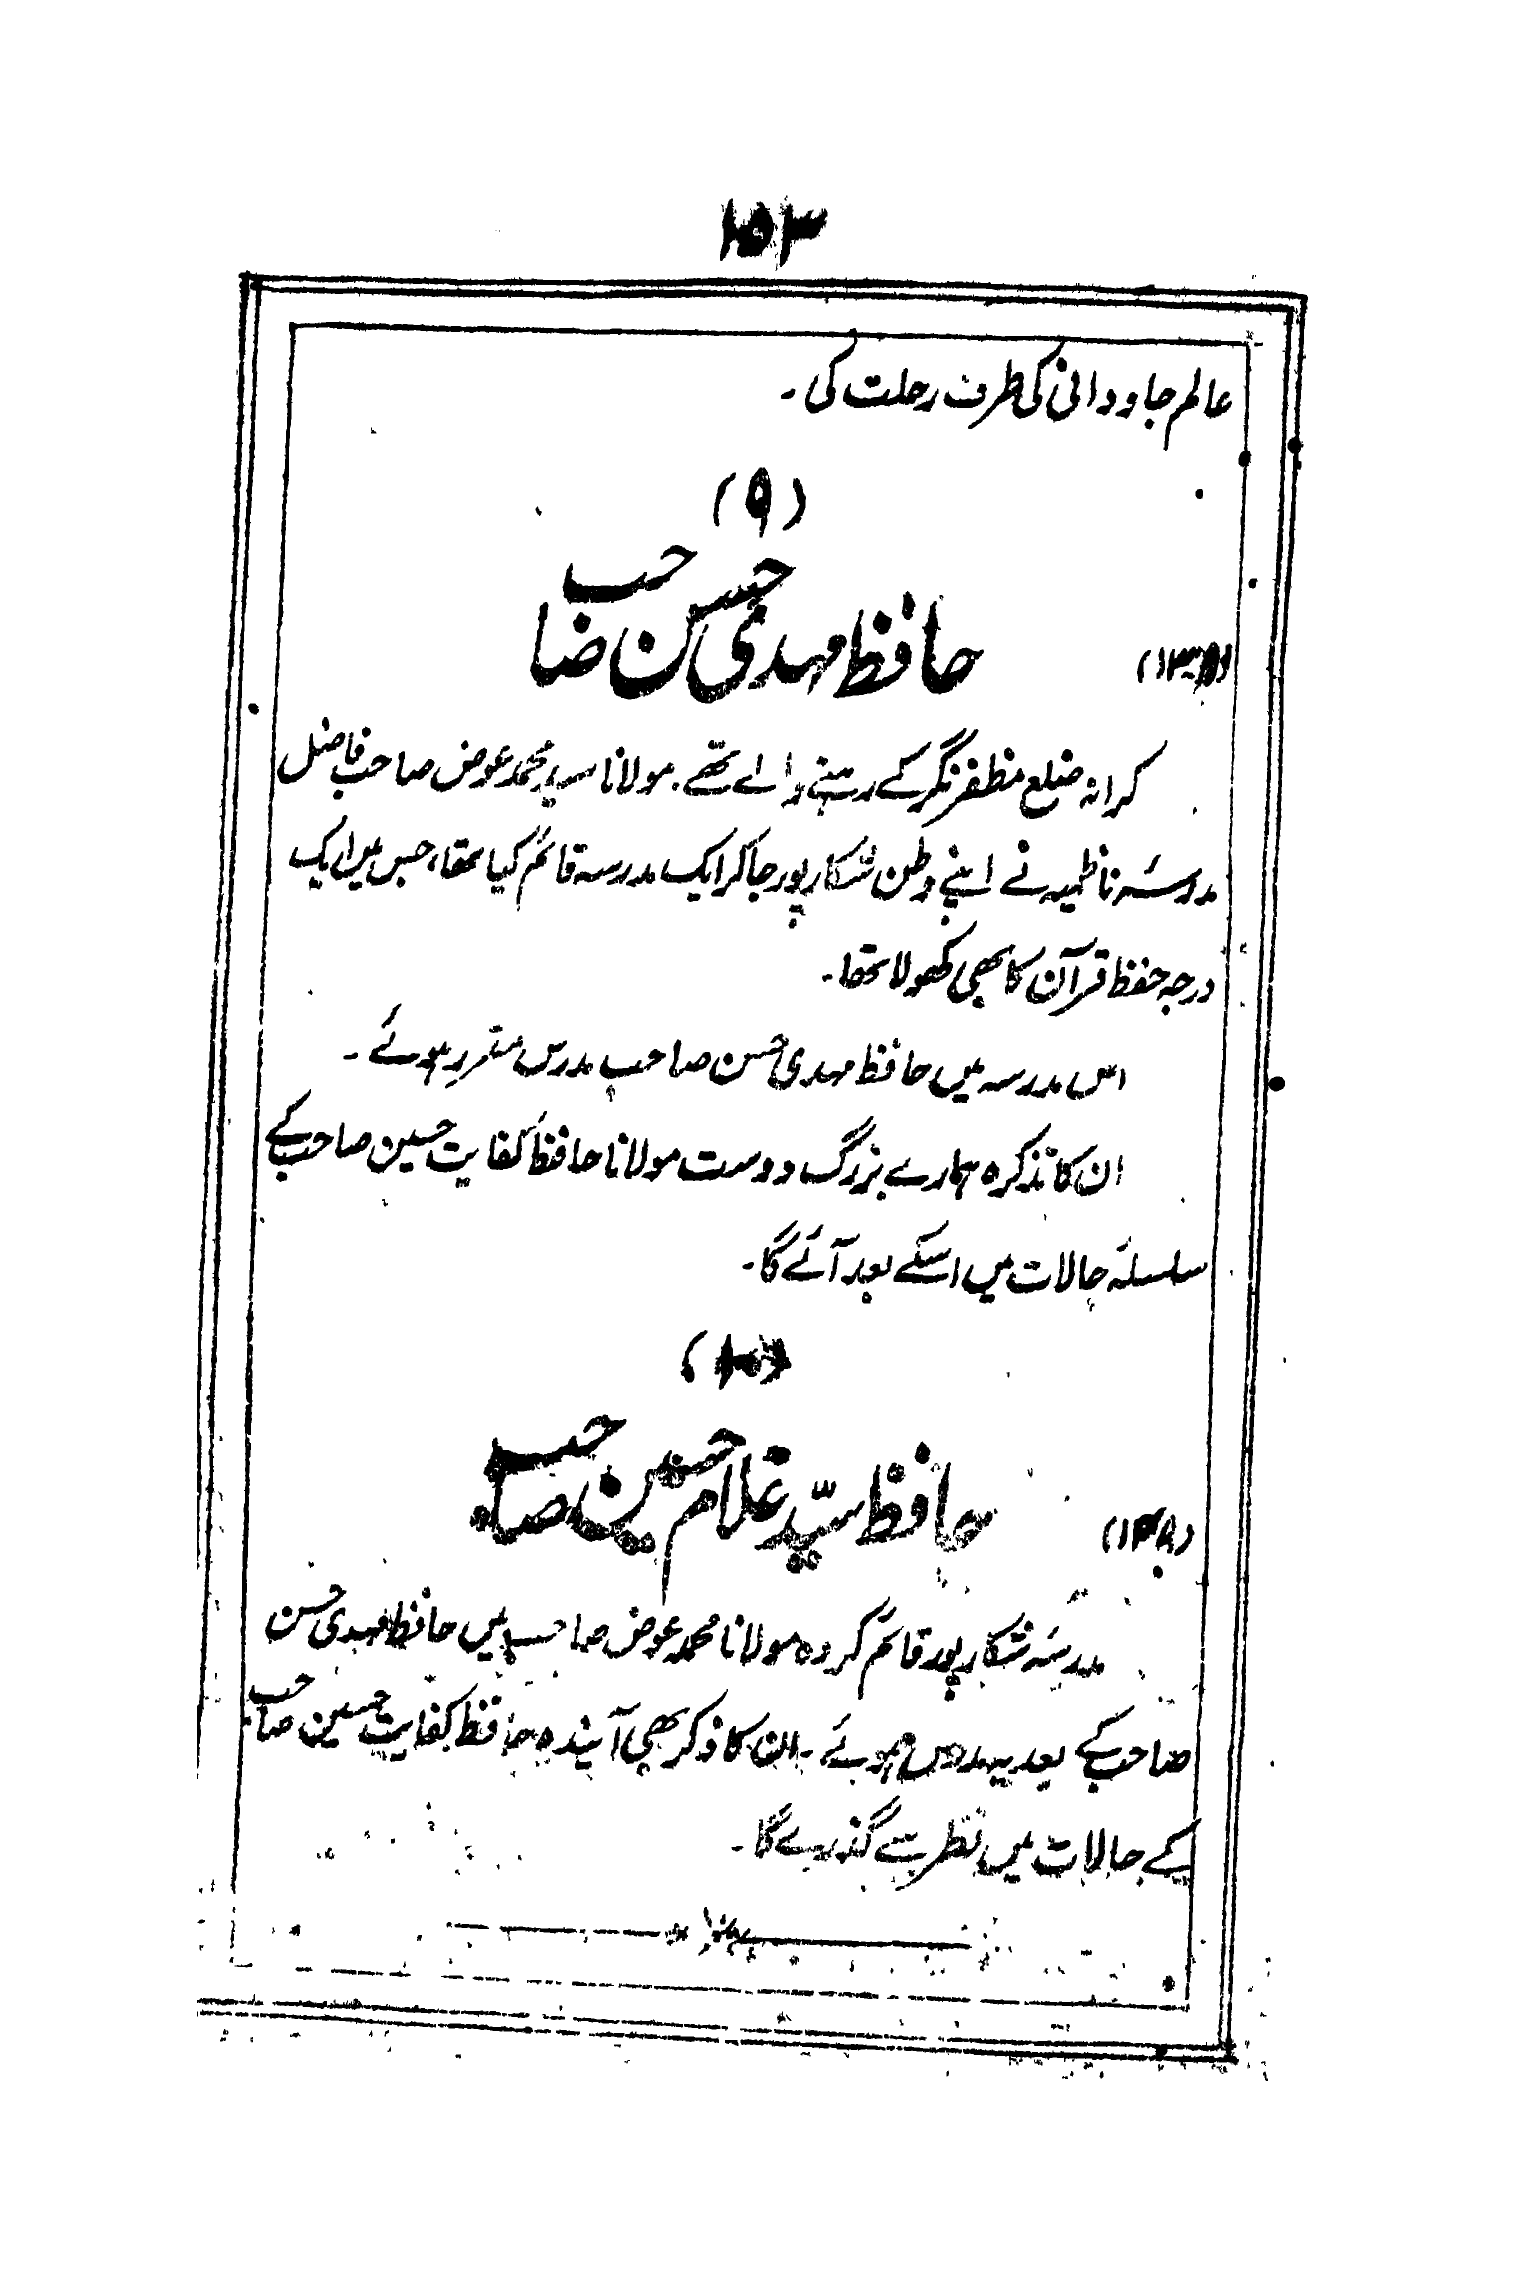 ۱۵۳
عالم جاودانی کی طرف رحلت کی ۔
(۹)
حافظ مہدی حسن صاحب
کرانہ ضلع مظفرنگر کے رہنے والے تھے۔ مولانا سید محمد عوض صاحب فاضل
مدرسۂ ناظمیہ نے اپنے وطن شکارپور جاکر ایک مدرسہ قائم کیا تھا، جس میں ایک
درجہ حفظ قرآن کا بھی کھولا تھا۔
اس مدرسہ میں حافظ مہدی حسن صاحب مدرس مقرر ہوئے ۔
ان کا تذکرہ ہمارے بزرگ دوست مولانا حافظ کفایت حسین صاحب کے
سلسلۂ حالات میں اسکے بعد آئے گا۔
(۱۰)
حافظ سیّد غلام حسین صاحب
مدرسۂ شکارپور قائم کردہ مولانا محمد عوض صاحب میں حافظ مہدی حسن
صاحب کے بعد یہ مدرس ہوئے ۔ ان کا ذکر بھی آیندہ حافظ کفایت حسین صاحب
کے حالات میں نظر سے گذرے گا ۔